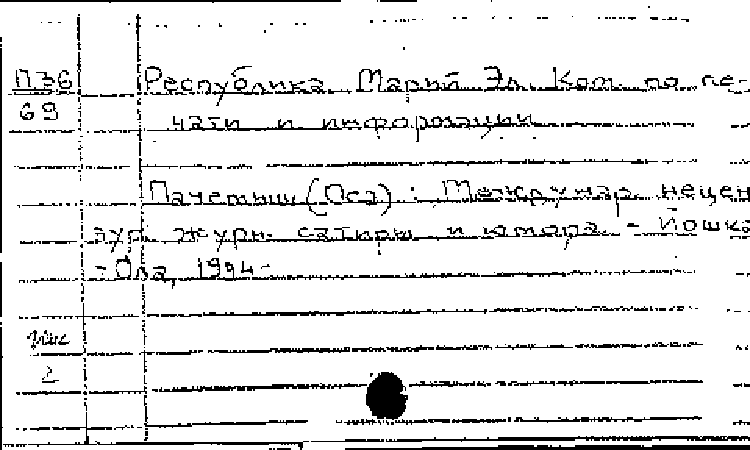 П36 Республика Марий Эл. Ком. по пе-
69 чати и информации
Пачемыш (Оса) : Междунар. нецен
зур. журн. сатиры и юмора. - Йошка
- Ола, 1994-
2